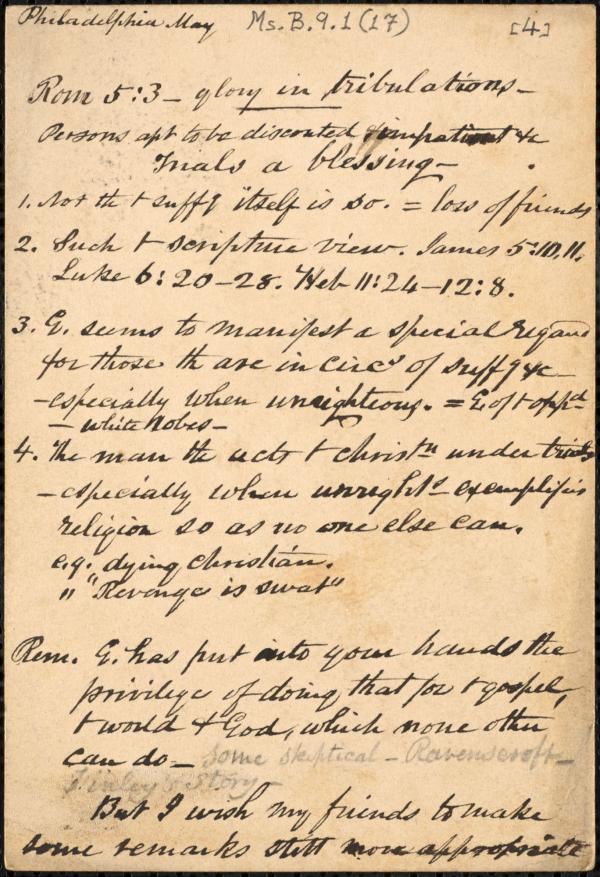 Philadelphia May Ms. B. 9. 1 (17) [4]
Rom 5:3 - glory in tribulations -
Persons apt to be disconted & impatient &c
Trials a blessing -
1. Not th t suffg itself is so. = loss of friends
2. Such t scripture view. James 5:10,11.
Luke 6:20-28. Heb 11:24-12:8.
3. G. seems to manifest a special regard
for those th are in circs of suffg &c -
- especially when unrighteous. = G. of t oppd
- white robes -
4. The man th acts t christn under trials
- especially when unrights - exemplifies
religion so as no one else can.
e.g. dying Christian.
" "Revenge is sweet"
Rem. G. has put into your hands the
privilege of doing that for t gospel,
t world & God, which none other
can do - some skeptical - Ravenscroft -
Finley's Story -
But I wish my friends to make
some remarks still more appropriate